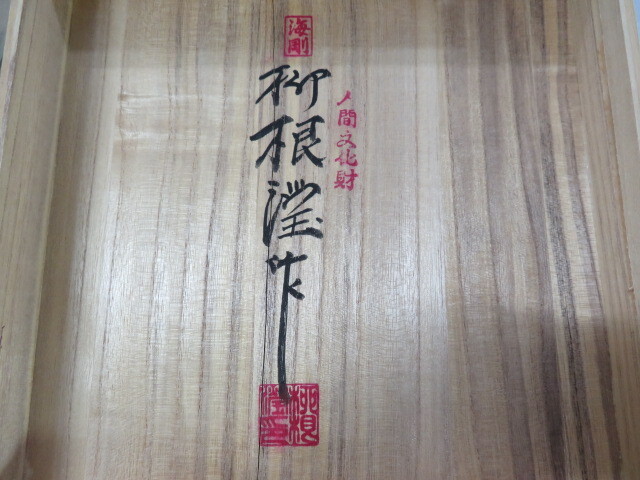 海剛
人間文化財
柳根瀅作
柳根
瀅印